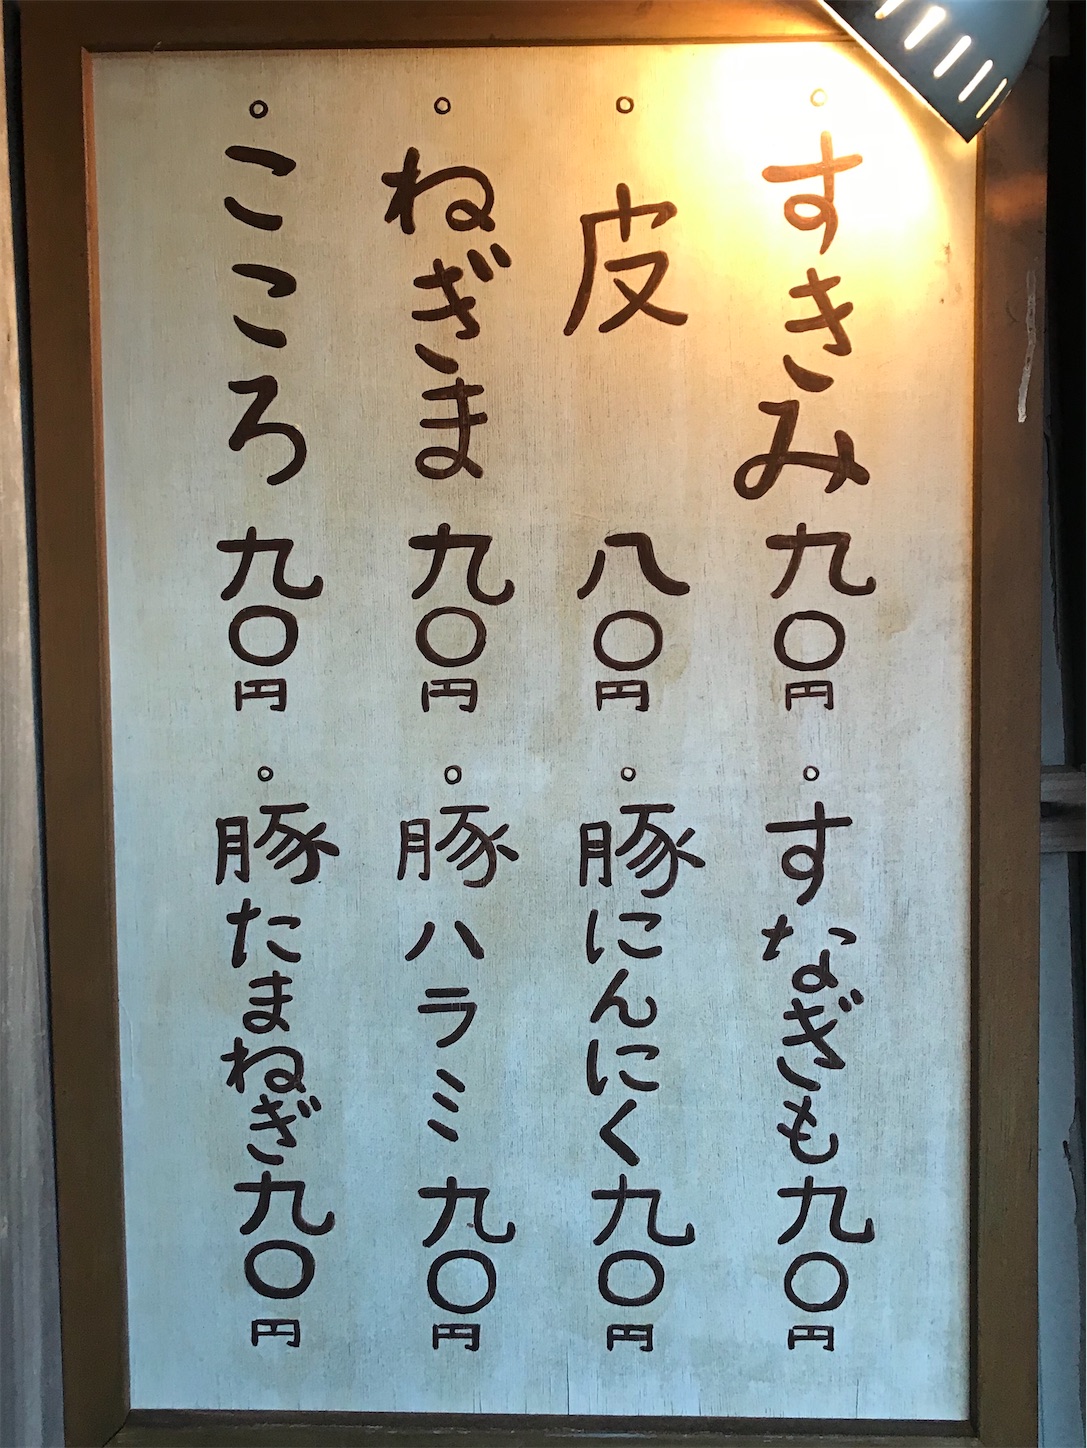 。すきみ九〇円
。皮 八〇円
。ねぎま九〇円
。こころ九〇円
。すなぎも九〇円
。豚にんにく九〇円
。豚ハラミ九〇円
。豚たまねぎ九〇円